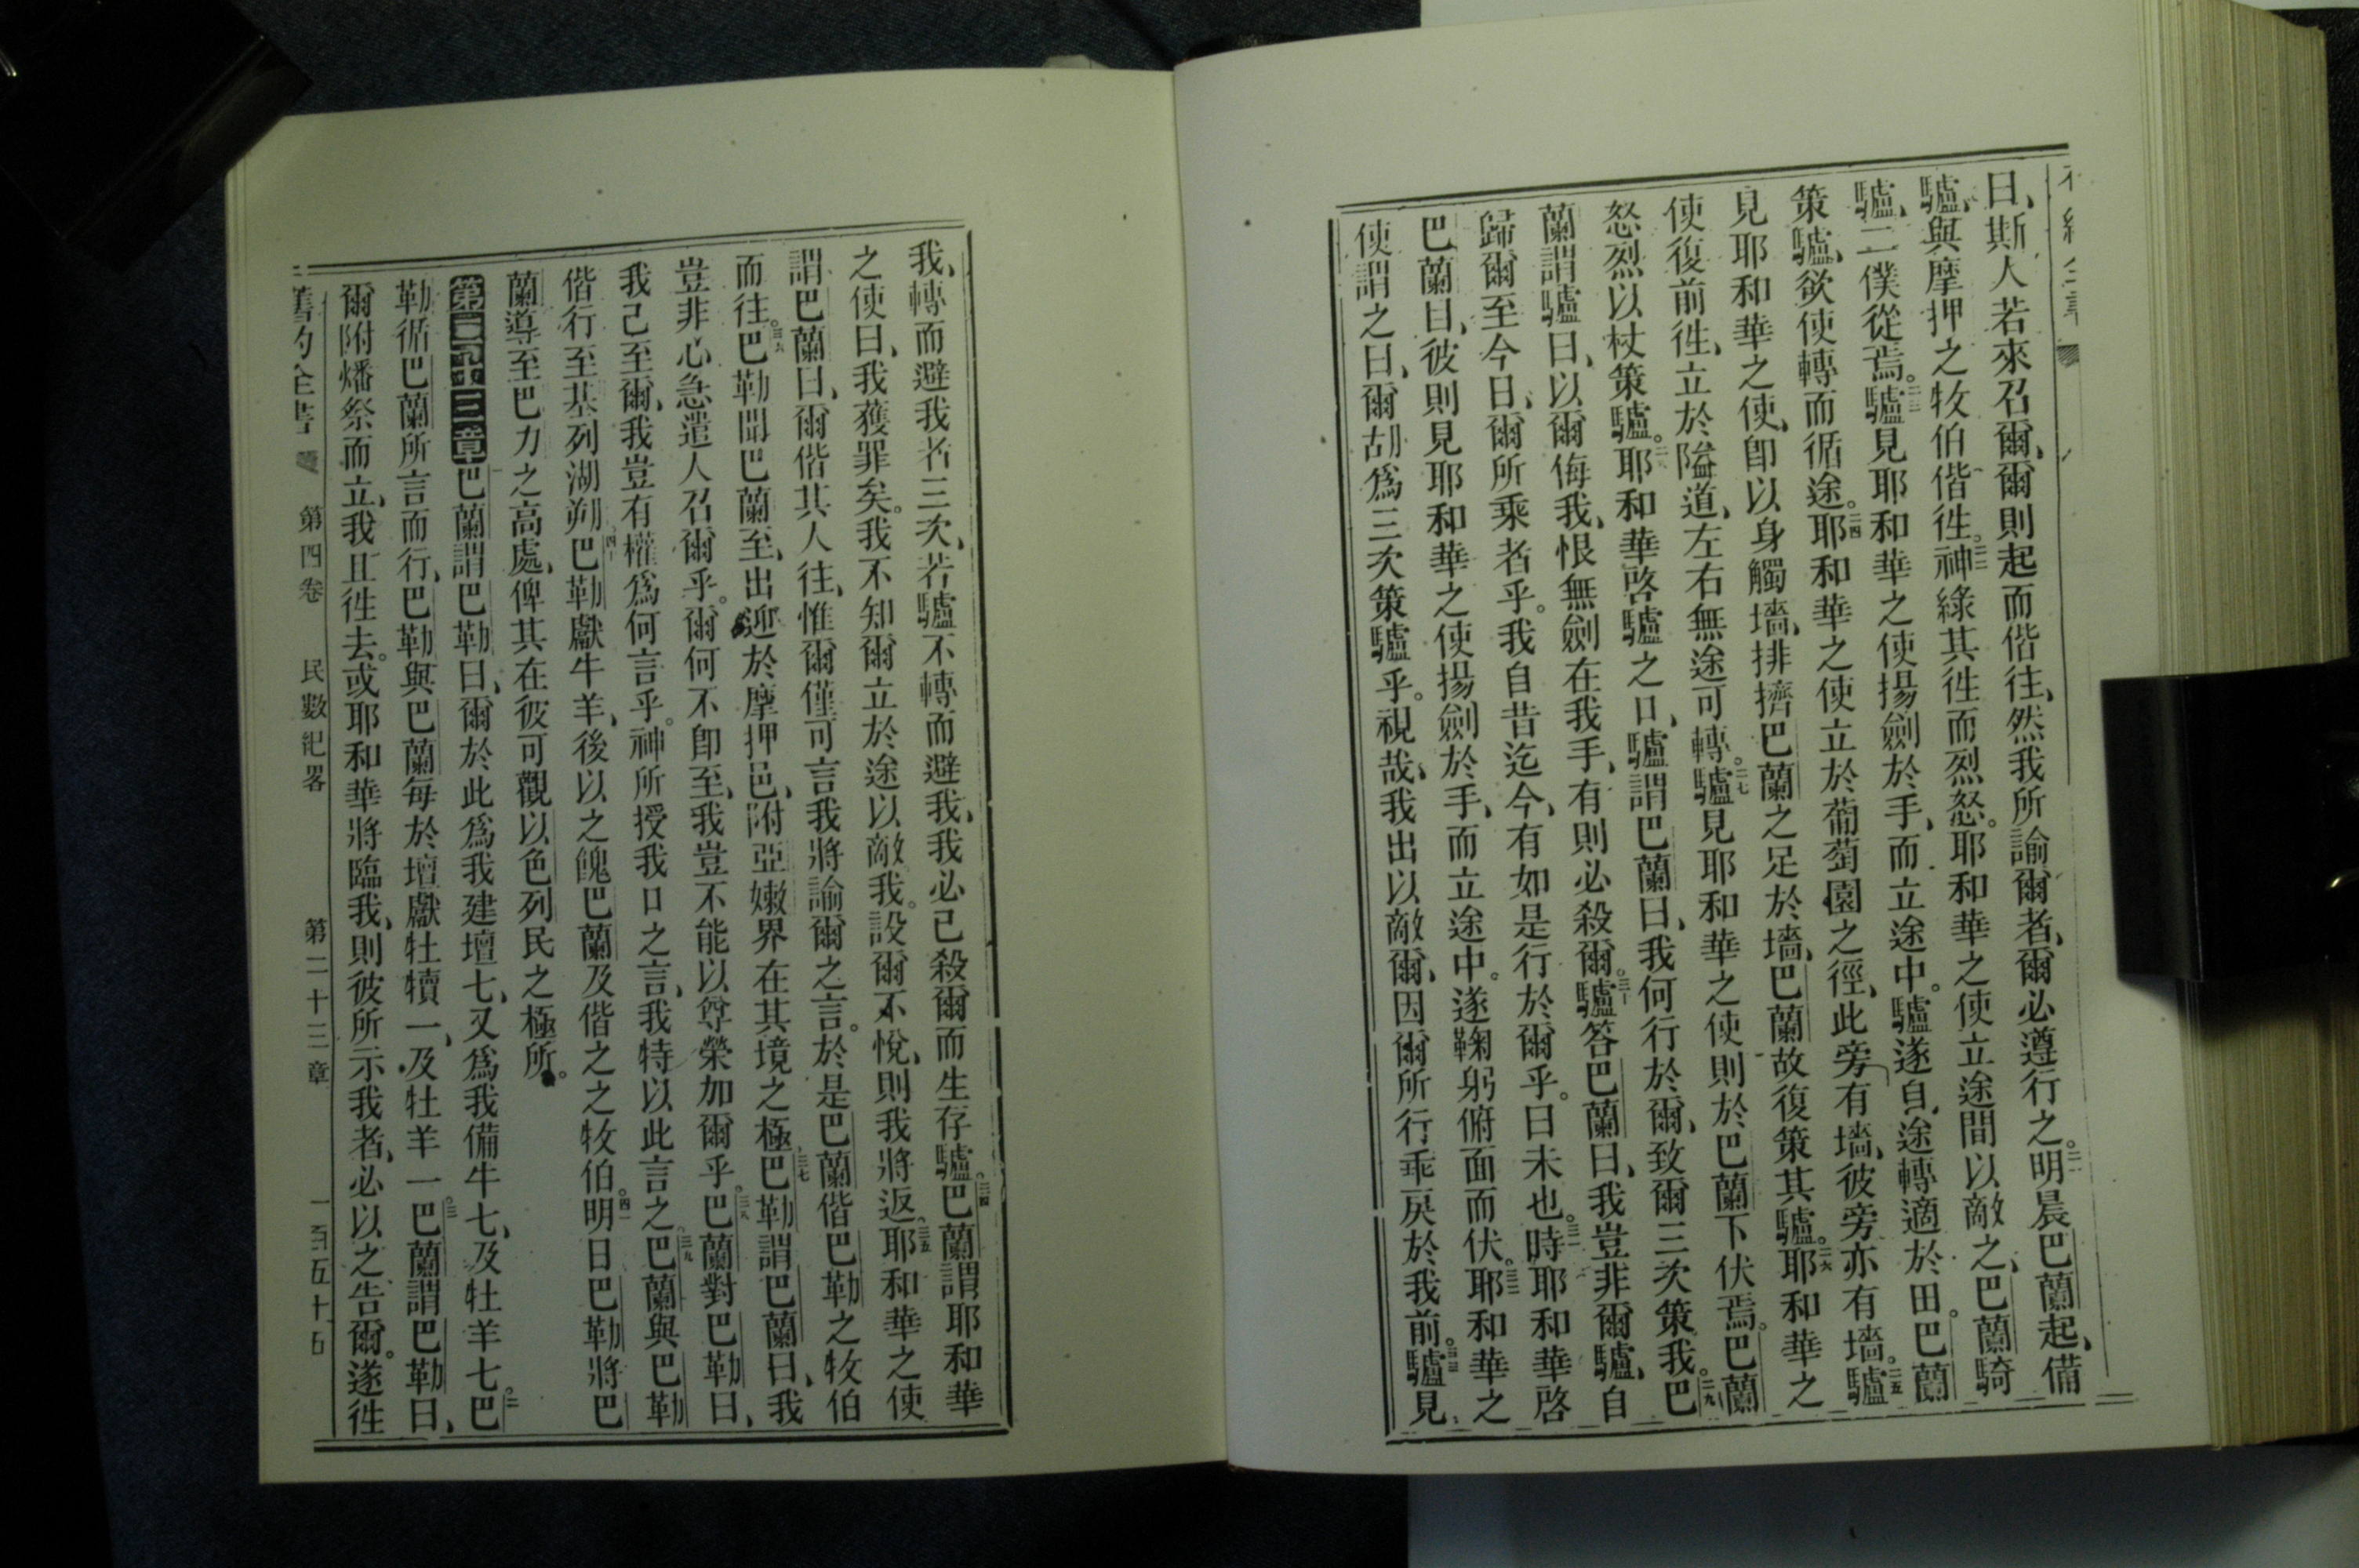 曰、斯人若來召爾、爾則起而偕往、然我所諭爾者、爾必遵行之。二一明晨巴蘭起、備
驢、與摩押之牧伯偕徃。二二神緣其徃而烈怒。耶和華之使立途間以敵之、巴蘭騎
驢、二僕從焉。二三驢見耶和華之使揚劍於手、而立途中。驢遂自途轉適於田。巴蘭
策驢、欲使轉而循途。二四耶和華之使立於葡萄園之徑、此旁有墻、彼旁亦有墻。二五驢
見耶和華之使、卽以身觸墻、排擠巴蘭之足於墻、巴蘭故復策其驢。二六耶和華之
使復前徃、立於隘道、左右無途可轉。二七驢見耶和華之使則於巴蘭下伏焉。巴蘭
怒烈以杖策驢。二八耶和華啓驢之口、驢謂巴蘭曰、我何行於爾、致爾三次策我。二九巴
蘭謂驢曰、以爾侮我、恨無劍在我手、有則必殺爾。三十驢答巴蘭曰、我豈非爾驢、自
歸爾至今日、爾所乘者乎。我自昔迄今、有如是行於爾乎。曰未也。三一時耶和華啓
巴蘭目、彼則見耶和華之使揚劍於手、而立途中。遂鞠躬俯面而伏。三二耶和華之
使謂之曰、爾胡爲三次策驢乎。視哉、我出以敵爾、因爾所行乖戾於我前。三三驢見
我、轉而避我者三次、若驢不轉而避我、我必已殺爾而生存驢。三四巴蘭謂耶和華
之使曰、我獲罪矣。我不知爾立於途以敵我。設爾不悅、則我將返。三五耶和華之使
謂巴蘭曰、爾偕其人往、惟爾僅可言我將諭爾之言。於是巴蘭偕巴勒之牧伯
而往。三六巴勒聞巴蘭至、出迎於摩押邑、附亞嫩界在其境之極。三七巴勒謂巴蘭曰、我
豈非心急遣人召爾乎。爾何不卽至、我豈不能以尊榮加爾乎。三八巴蘭對巴勒曰、
我已至爾、我豈有權爲何言乎。神所授我口之言、我特以此言之。三九巴蘭與巴勒
偕行至基列湖朔。四十巴勒獻牛羊、後以之餽巴蘭及偕之之牧伯。四一明日巴勒將巴
蘭導至巴力之高處、俾其在彼可觀以色列民之極所。
第二十三章巴蘭謂巴勒曰、爾於此爲我建壇七、又爲我備牛七、及牡羊七。二巴
勒循巴蘭所言而行、巴勒與巴蘭每於壇獻牡犢一、及牡羊一。三巴蘭謂巴勒曰、
爾附燔祭而立、我且徃去。或耶和華將臨我、則彼所示我者、必以之告爾。遂徃
舊約全書 第四卷 民數紀畧 第二十三章 一百五十五